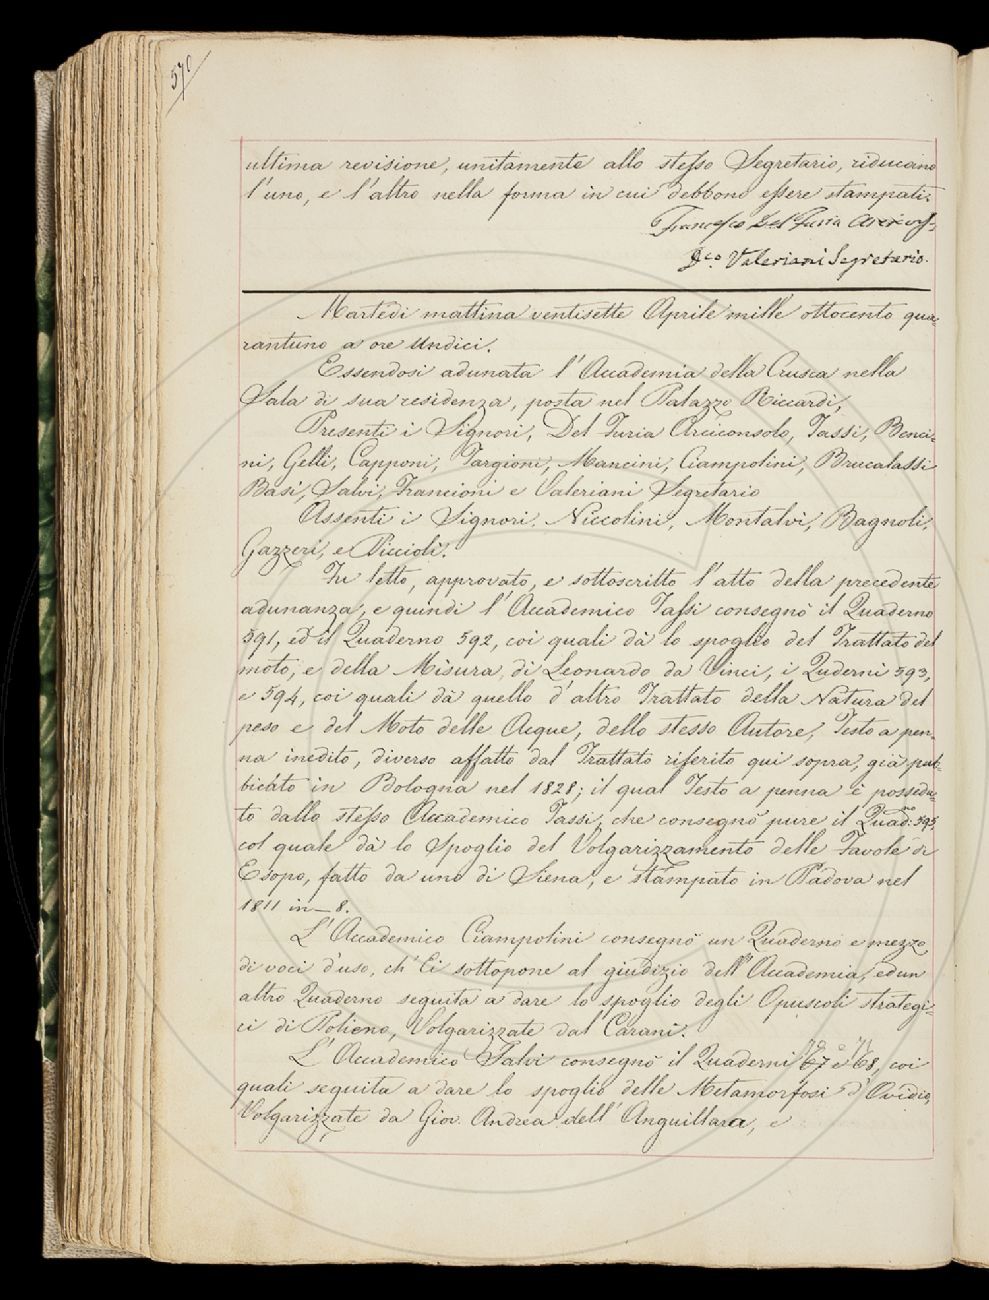 570
ultima revisione, unitamente allo stesso Segretario, riducano
l'uno, e l'altro nella forma in cui debbono essere stampati.
Francesco Del Furia Arcicons.
Fco. Valeriani Segretario.
Martedì mattina ventisette Aprile mille ottocento qua=
rantuno a ore undici.
Essendosi adunata l'Accademia della Crusca nella
Sala di sua residenza, posta nel Palazzo Riccardi,
Presenti i Signori, Del Furia Arciconsolo, Tassi, Benci=
ni, Gelli, Capponi, Targioni, Mancini, Ciampolini, Brucalassi
Basi, Salvi, Francioni e Valeriani Segretario
Assenti i Signori. Niccolini, Montalvi, Bagnoli,
Gazzeri, e Piccioli.
Fu letto, approvato, e sottoscritto l'atto della precedente
adunanza, e quindi l'Accademico Tassi consegnò il Quaderno
591, ed il Quaderno 592, coi quali dà lo spoglio del Trattato del
moto, e della Misura, di Leonardo da Vinci, i Quderni 593,
e 594, coi quali dà quello d'altro Trattato della Natura del
peso e del Moto delle Acque, dello stesso Autore, Testo a pen=
na inedito, diverso affatto dal Trattato riferito qui sopra, già pub=
bicato in Bologna nel 1828; il qual Testo a penna è possedu=
to dallo stesso Accademico Tassi, che consegnò pure il Quad.no 595,
col quale dà lo Spoglio del Volgarizzamento delle Favole di
Esopo, fatto da uno di Siena, e stampato in Padova nel
1811 in_8.
L'Accademico Ciampolini consegnò un Quaderno e mezzo
di voci d'uso, ch'Ei sottopone al giudizio dell'Accademia, ed un
altro Quaderno seguita a dare lo spoglio degli Opuscoli strategi=
ci di Polieno, Volgarizzate dal Carani.
L'Accademico Salvi consegnò il Quaderni 67 e 68, coi
quali seguita a dare lo spoglio delle Metamorfosi d'Ovidio,
Volgarizzate da Giov. Andrea dell'Anguillara, e